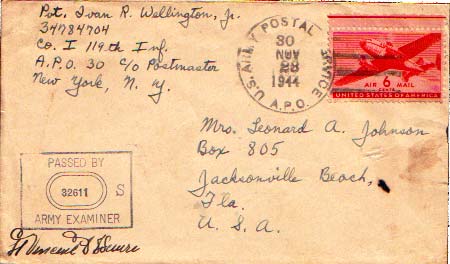 Pvt. Ivan R. Wellington, Jr.
34784704
Co. I 119th Inf.
A.P.O. 30 c/o Postmaster
New York, N. Y.
U.S. ARMY POSTAL SERVICE
30
NOV
28
1944
A.P.O.
AIR 6 MAIL
CENTS
UNITED STATES OF AMERICA
Mrs. Leonard A. Johnson
Box 805
Jacksonville Beach,
Fla.
U. S. A.
PASSED BY
32611 S
ARMY EXAMINER